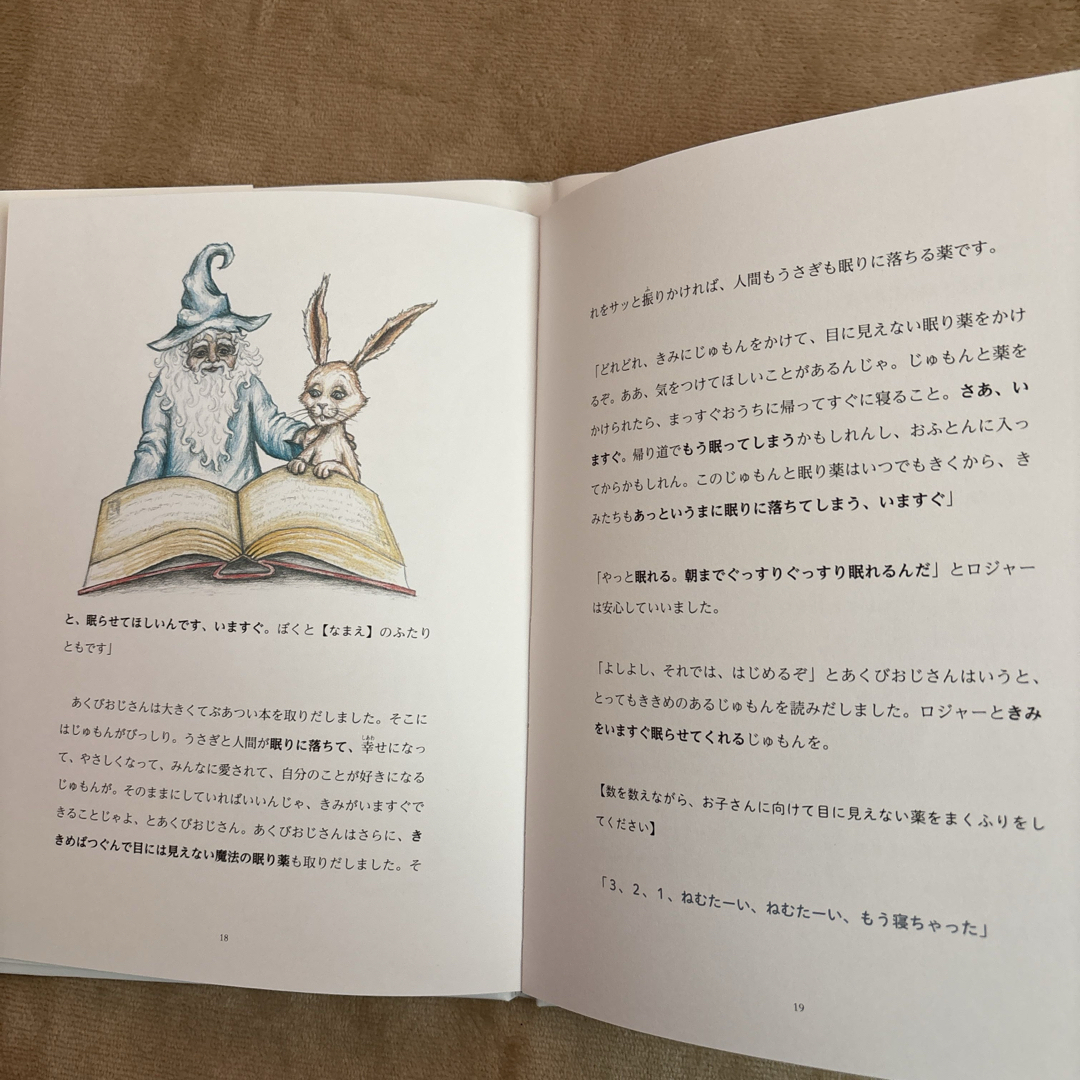 と、眠らせてほしいんです、いますぐ。ぼくと【なまえ】のふたり
ともです」
あくびおじさんは大きくてぶあつい本を取りだしました。そこに
はじゅもんがびっしり。うさぎと人間が眠りに落ちて、幸せになっ
て、やさしくなって、みんなに愛されて、自分のことが好きになる
じゅもんが。そのままにしていればいいんじゃ、きみがいますぐで
きることじゃよ、とあくびおじさん。あくびおじさんはさらに、き
きめばつぐんで目には見えない魔法の眠り薬も取りだしました。そ
18
れをサッと振りかければ、人間もうさぎも眠りに落ちる薬です。
「どれどれ、きみにじゅもんをかけて、目に見えない眠り薬をかけ
るぞ。ああ、気をつけてほしいことがあるんじゃ。じゅもんと薬を
かけられたら、まっすぐおうちに帰ってすぐに寝ること。さあ、い
ますぐ。帰り道でもう眠ってしまうかもしれんし、おふとんに入っ
てからかもしれん。このじゅもんと眠り薬はいつでもきくから、き
みたちもあっというまに眠りに落ちてしまう、いますぐ」
「やっと眠れる。朝までぐっすりぐっすり眠れるんだ」とロジャー
は安心していいました。
「よしよし、それでは、はじめるぞ」とあくびおじさんはいうと、
とってもききめのあるじゅもんを読みだしました。ロジャーときみ
をいますぐ眠らせてくれるじゅもんを。
【数を数えながら、お子さんに向けて目に見えない薬をまくふりをし
てください】
「3、2、1、ねむたーい、ねむたーい、もう寝ちゃった」
19